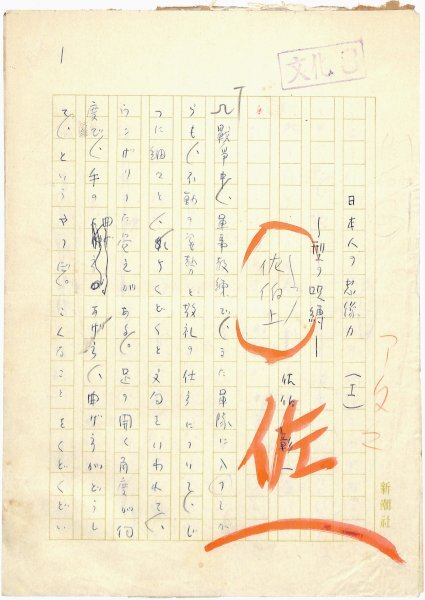 1
文化
日本人の想像力(上)
―型の呪縛―
佐伯彰一
佐伯上
佐
戦争中、軍事教練で、また軍隊に入ってか
らも、不動の姿勢と敬礼の仕方について、じ
つに細々と、くどくどと文句をいわれて、
うんざりした覚えがある。足の開く角度が何
度で、手の曲げ方、あげ方、曲げ方がどうし
て、というやつだ。こんなことをくどくどい
新潮社